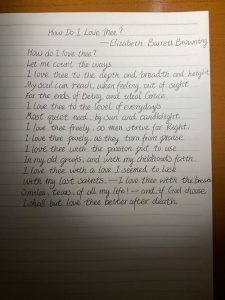 How Do I Love Thee?
—Elizabeth Barrett Browning
How do I love thee?
Let me count the ways
I love thee to the depth and breadth and height
My soul can reach, when feeling out of sight
For the ends of Being and ideal Grace.
I love thee to the level of everyday's
Most quiet need, by sun and candlelight.
I love thee freely, as men strive for Right;
I love thee purely, as they turn from Praise.
I love thee with the passion put to use
In my old griefs, and with my childhood's faith.
I love thee with a love I seemed to lose
With my lost saints, — I love thee with the breath
Smiles, tears, of all my life! — and, if God choose
I shall but love thee better after death.